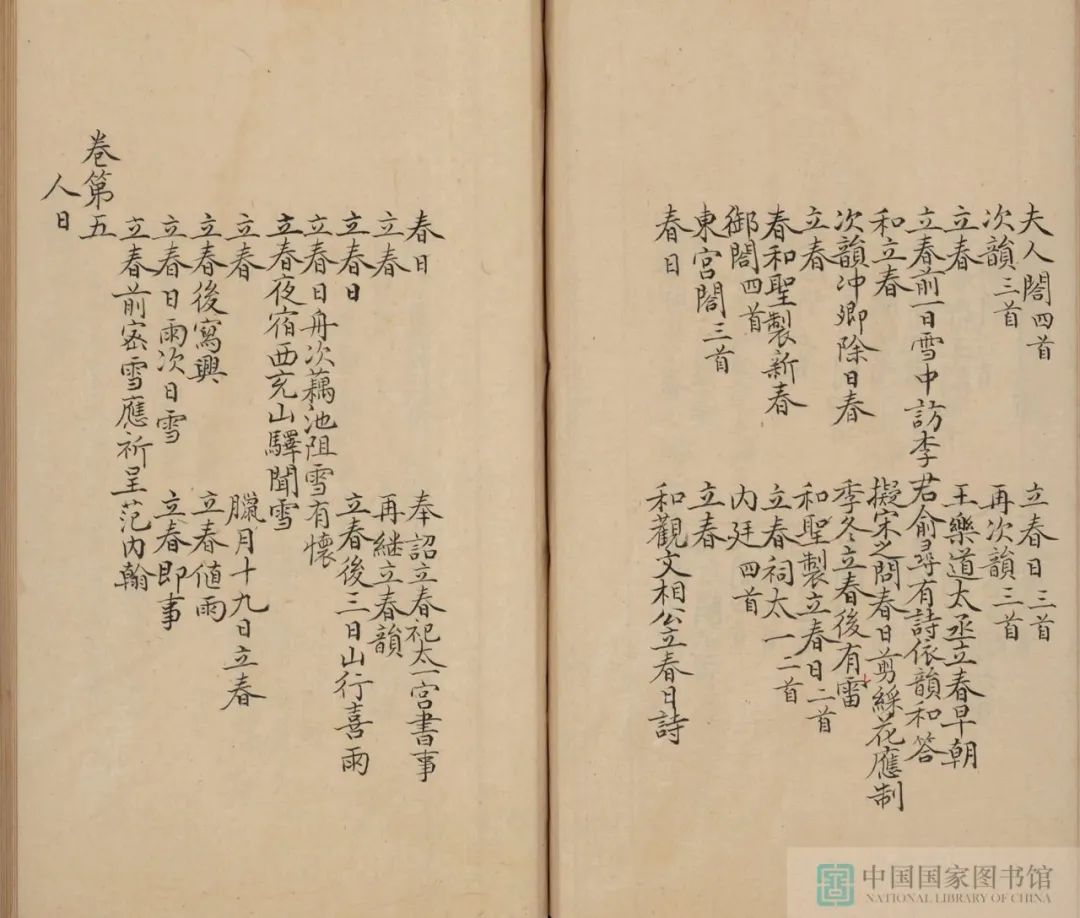 夫人閤四首　立春日三首
次韻三首　再次韻三首
立春　王樂道太丞立春早朝
立春前一日雪中訪李君俞尋有詩依韻和答
和立春　擬宋之問春日剪綵花應制
次韻冲卿除日春　季冬立春後有雷
立春　和聖製立春日二首
春和聖製新春　立春祠太一二首
御閤四首　内廷四首
東宮閤三首　立春
春日　和觀文相公立春日詩
春日　奉詔立春祀太一宮書事
立春　再継立春韻
立春日　立春後三日山行喜雨
立春日舟次藕池阻雪有懷
立春夜宿西充山驛聞雪
立春　臘月十九日立春
立春後寫興　立春值雨
立春日雨次日雪　立春即事
立春前宻雪應祈呈范内翰
卷第五
人日
中国国家图书馆
NATIONAL LIBRARY OF CHINA